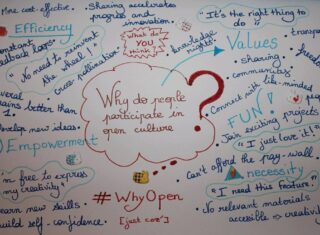 More cost-effective
Sharing accelerates
progress and
innovation.
"It's the right thing to
do"
Efficiency
constant
feedback loops
"No need to reinvent
the wheel!"
cross pollination
What do
YOU
think?
knowledge
rights
Values
sharing
community
transp
freed
Several
brains better than
1.
Develop new ideas.
Why do people
participate in
open culture
?
Connect with like-minded
FUN!
Join exciting projects
"I just love it!"
Empowerment
Can't afford the pay-wall
in free to express
my creativity"
learn new skills.
build self-confidence.
necessity
"I need this feature"
No relevant materials
accessible → creativity
#WhyOpen
[just coz']